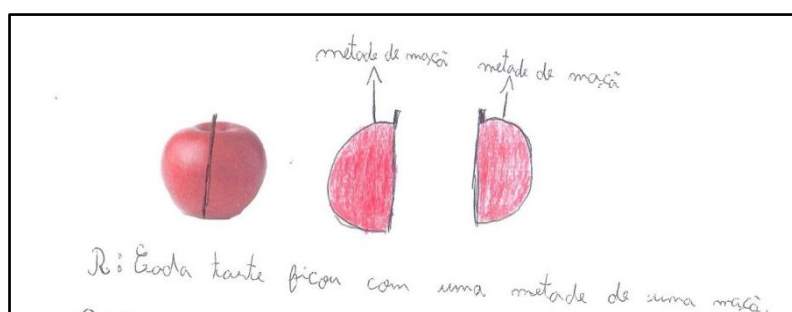 metade de maçã
metade de maçã
R: Cada tarte ficou com uma metade de uma maçã.